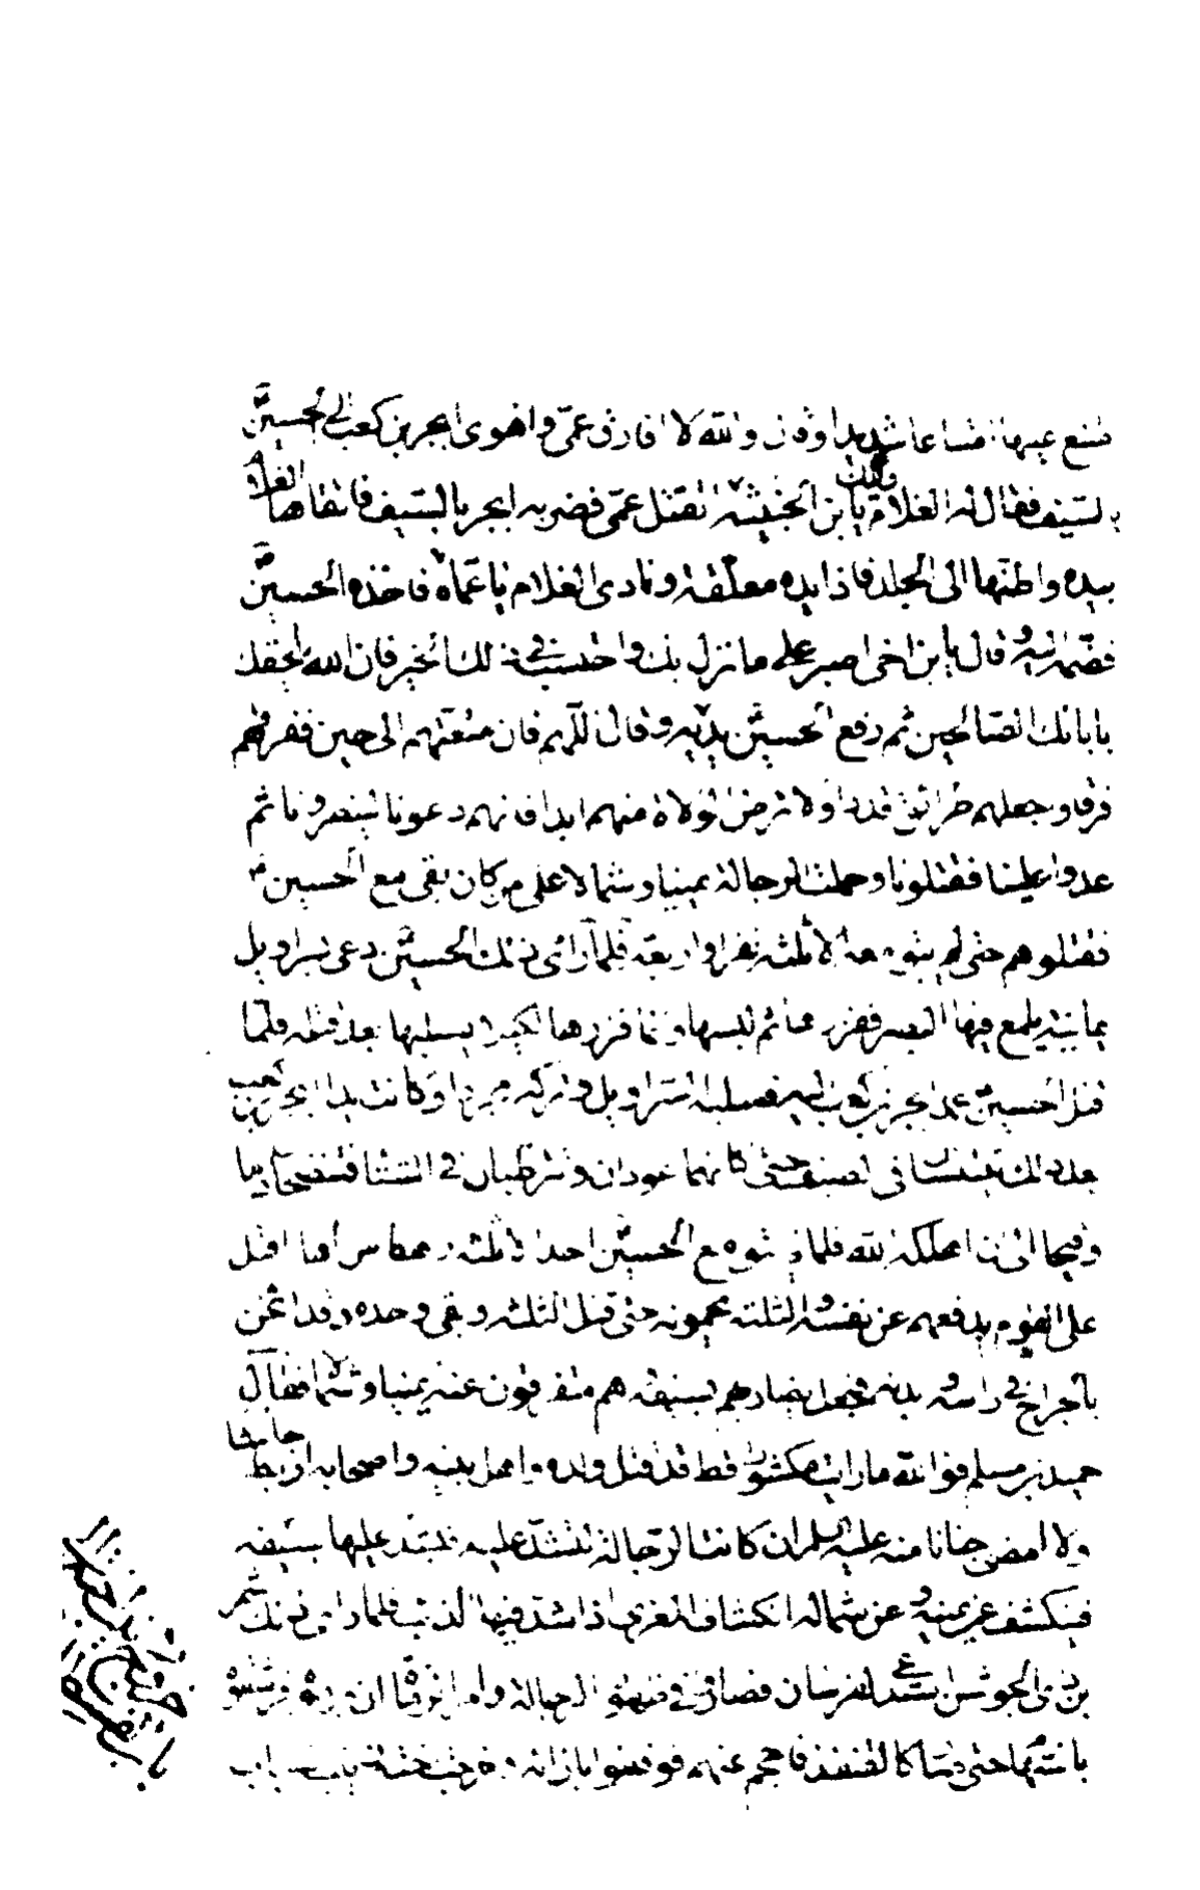 فامتنع عليها امتناعا شديدا وقال والله لا افارق عمى واهوى ابجر بن كعب الى الحسين
بالسيف فقال له الغلام ويلك يا بن الخبيثة اتقتل عمى فضربه ابجر بالسيف فاتقاها الغلام
بيده واطنها الى الجلد فاذا يده معلقة ونادى الغلام يا عماه فاخذه الحسين
فضمه اليه وقال يا بن اخى اصبر على ما نزل بك واحتسب فى ذلك الخير فان الله يلحقك
بابائك الصالحين ثم رفع الحسين يديه وقال اللهم فان متعتهم الى حين ففرقهم
فرقا واجعلهم طرائق قددا ولا ترض الولاة منهم ابدا فانهم دعونا لينصرونا ثم
عدوا علينا فقتلونا وحملت الرجالة يمينا وشمالا على من كان بقى مع الحسين
فقتلوهم حتى لم يبق معه الا ثلثة نفر او اربعة فلما راى ذلك الحسين دعى بسراويل
يمانية يلمع فيها البصر ففزرها ثم لبسها وانما فزرها لكيلا يسلبها بعد قتله فلما
قتل الحسين عمد ابجر بن كعب اليه فسلبه السراويل وتركه مجردا وكانت يدا ابجر بن كعب
بعد ذلك تيبسان فى الصيف حتى كانهما عودان وترطبان فى الشتا فتنضحان دما
وقيحا الى ان اهلكه الله فلما لم يبق مع الحسين احد الا ثلثة رهط من اهله اقبل
على القوم يدفعهم عن نفسه والثلثة يحمونه حتى قتل الثلثة وبقى وحده وقد اثخن
بالجراح فى راسه وبدنه فجعل يضاربهم بسيفه وهم متفرقون عنه يمينا وشمالا فقال
حميد بن مسلم فوالله ما رايت مكثورا قط قد قتل ولده واهل بيته واصحابه اربط جاشا
ولا امضى جنانا منه عليه السلم ان كانت الرجالة لتشد عليه فيشد عليها بسيفه
فينكشف عن يمينه وعن شماله انكشاف المعزى اذا شد فيها الذئب فلما راى ذلك شمر
بن ذى الجوشن استدعى الفرسان فصاروا فى ظهور الرجالة وامر الرماة ان يرموه فرشقوه
بالسهام حتى صار كالقنفذ فاحجم عنهم فوقفوا بازائه وخرجت اخته زينب الى باب